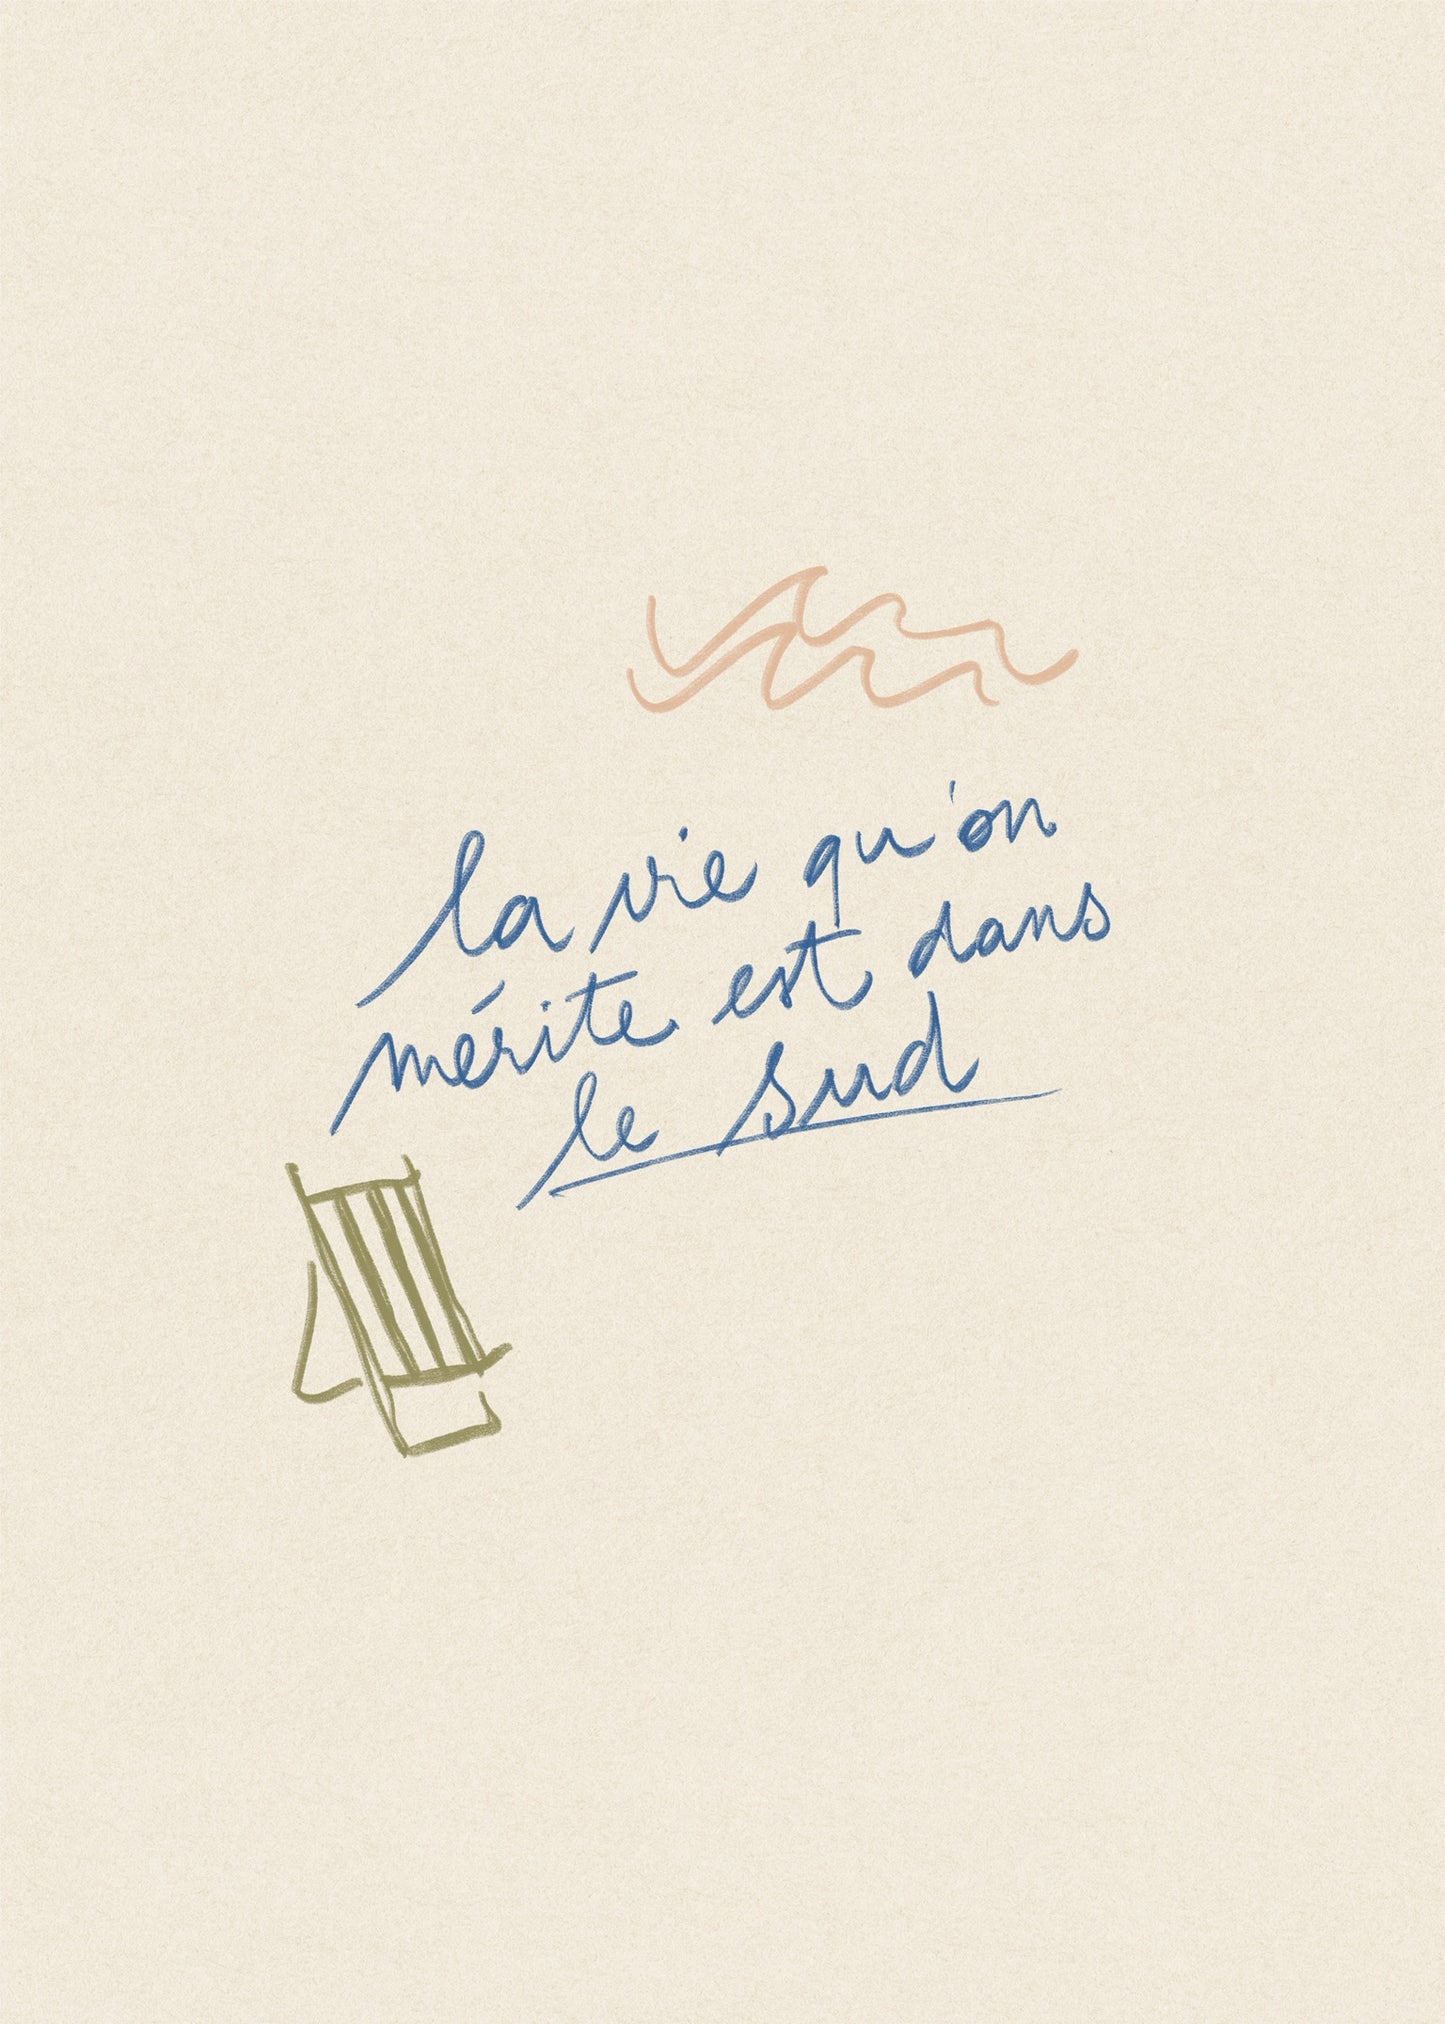 la vie qu'on
mérite est dans
le sud